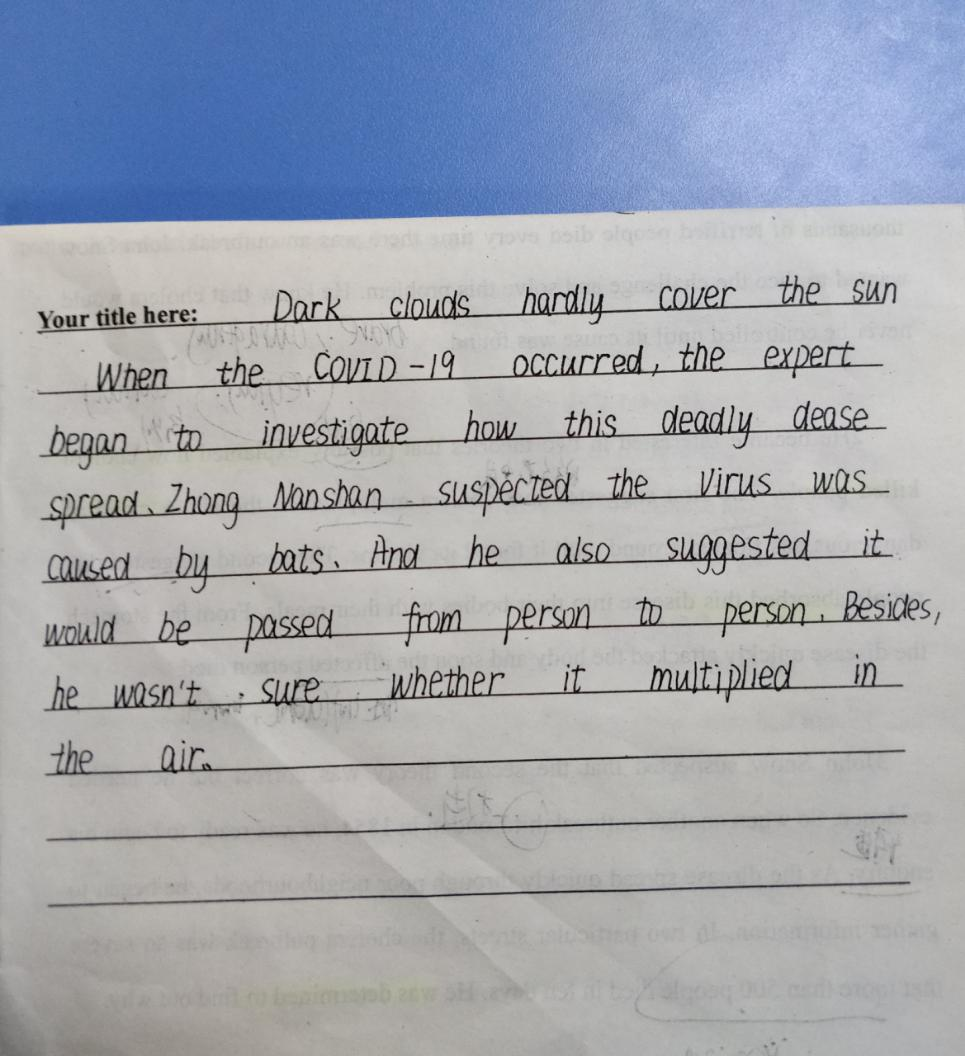 Your title here: Dark clouds hardly cover the sun
When the COVID-19 occurred, the expert
began to investigate how this deadly dease
spread. Zhong Nanshan suspected the virus was
caused by bats. And he also suggested it
would be passed from person to person. Besides,
he wasn't sure whether it multiplied in
the air.